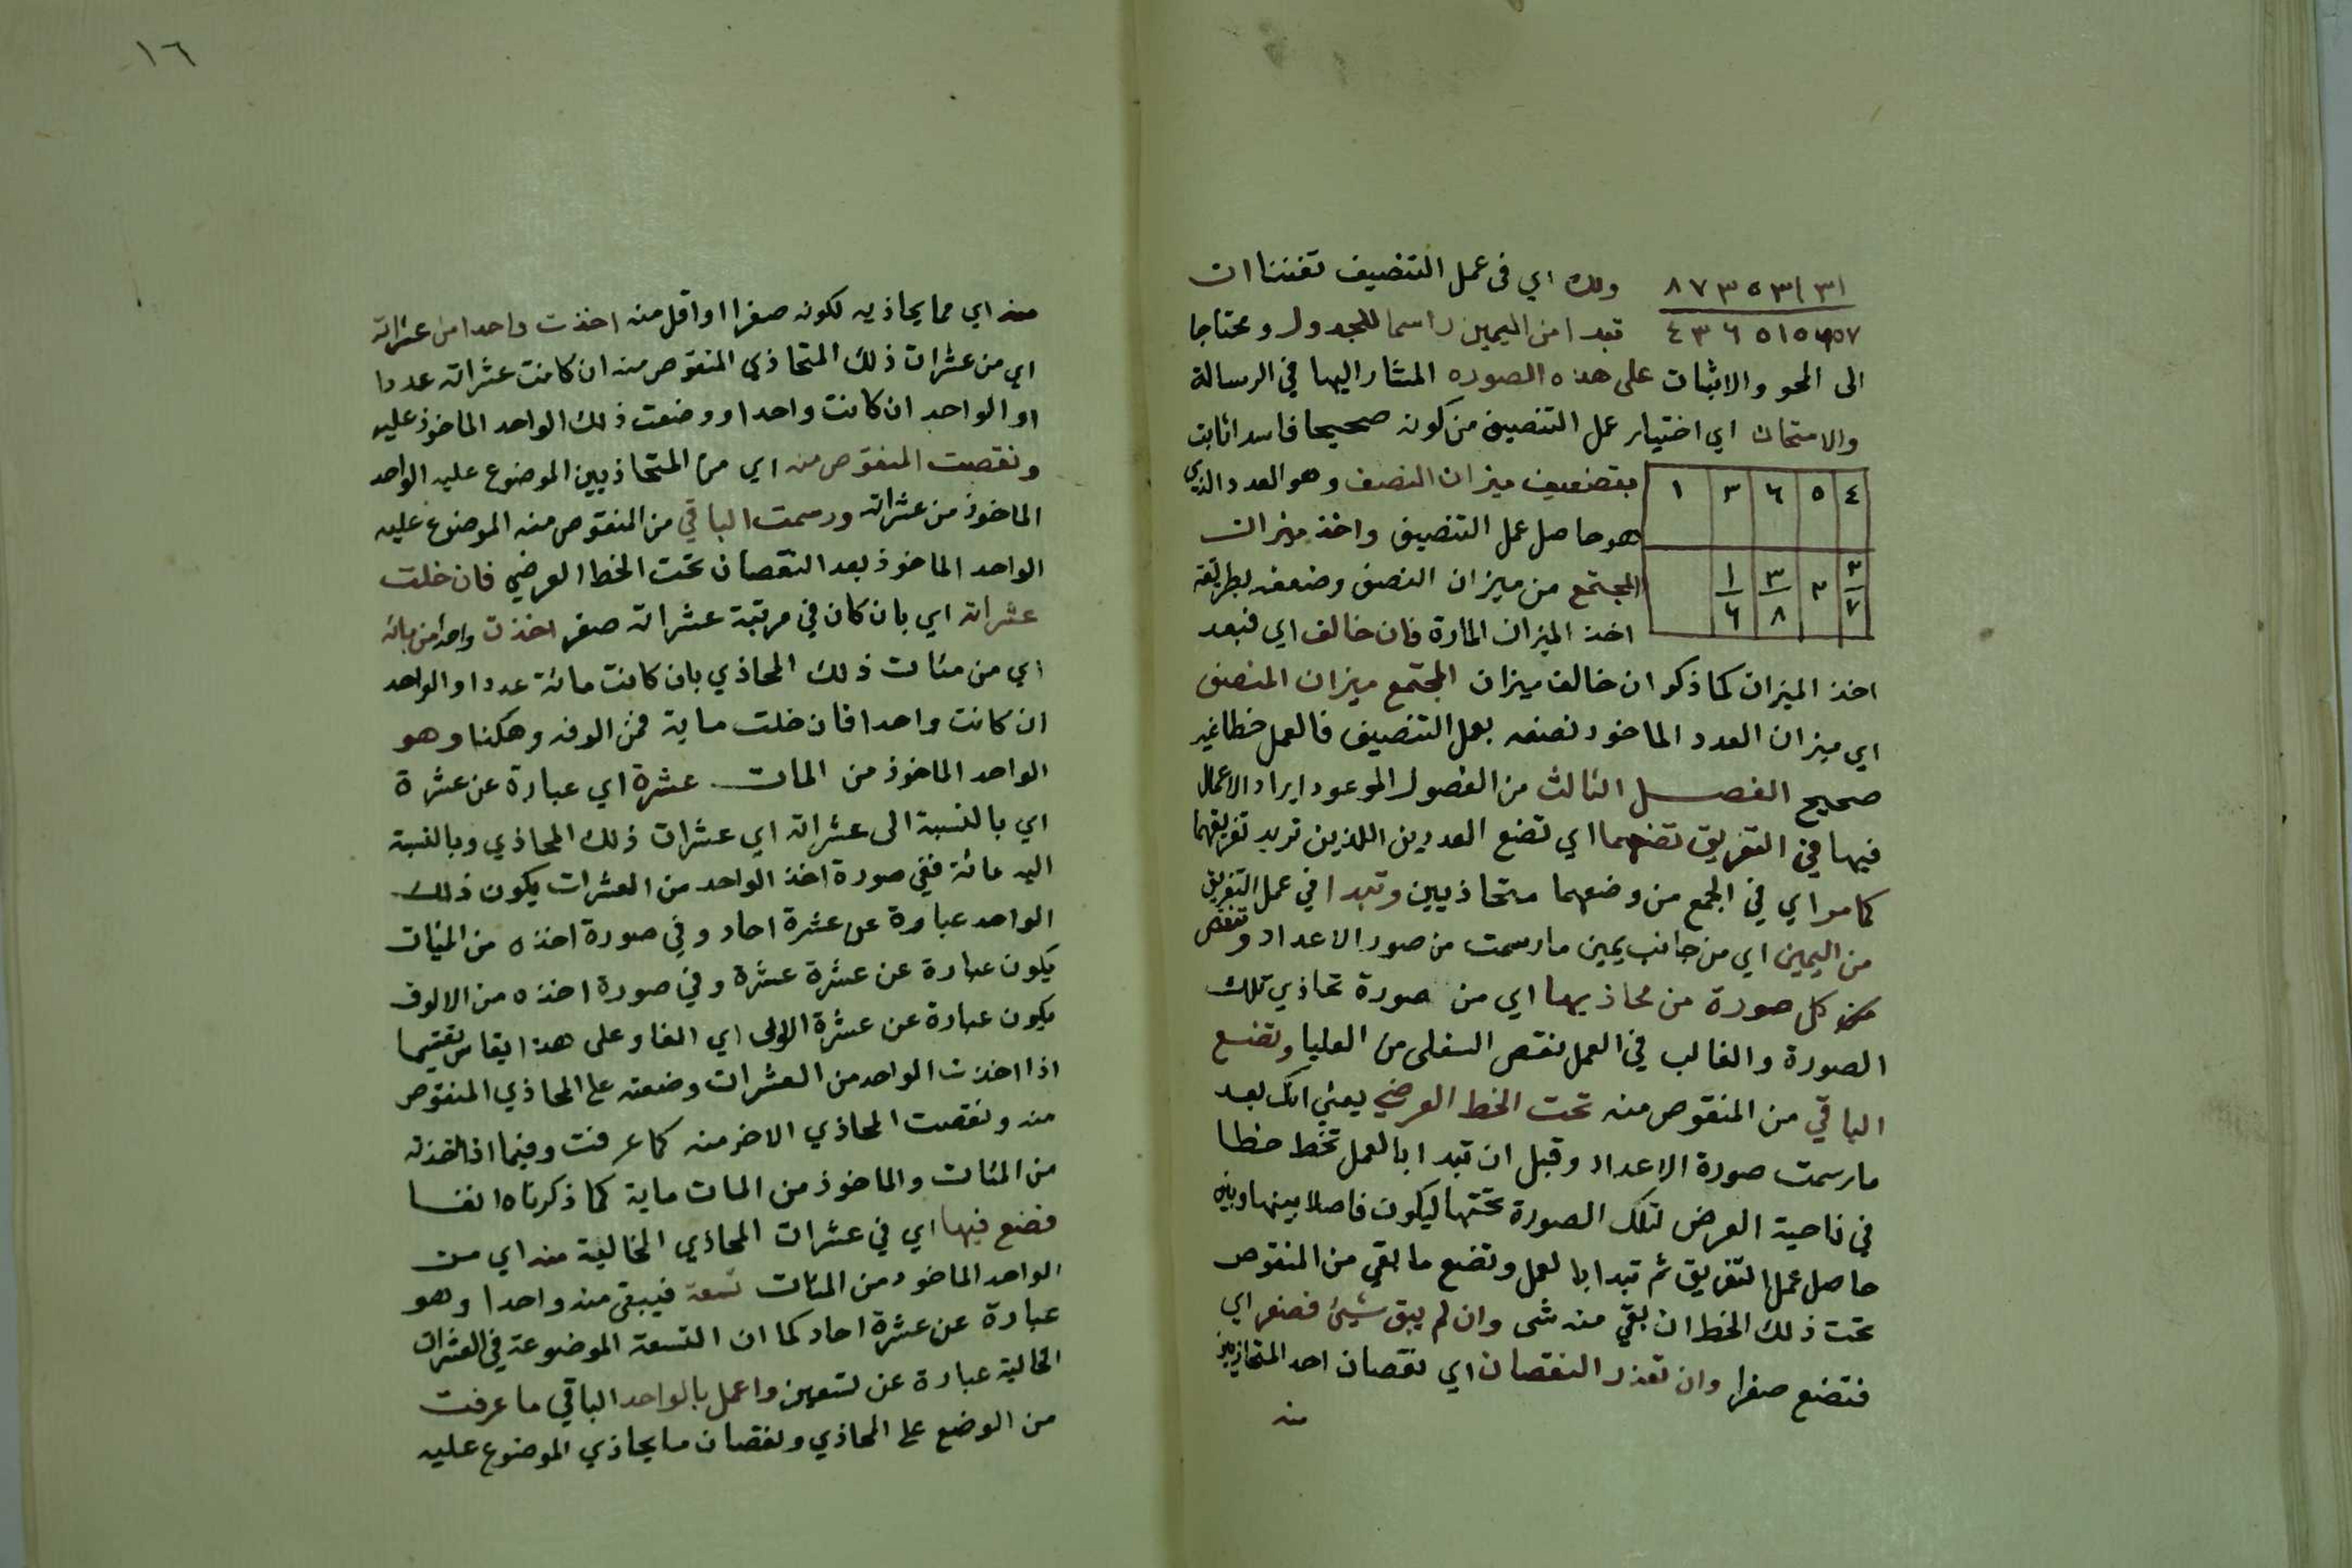 ٨٧٣٥٣١٣١ ولك اي في عمل التنصيف تفننا ان
تبدا من اليمين راسما للجدول ومحتاجا
الى المحو والاثبات على هذه الصوره المشار اليها في الرسالة
والامتحان اي اختيار عمل التنصيف من كونه صحيحا فاسدا ثابت
٤ ٥ ٦ ٣ ١ بتضعيف ميزان النصف وهو العدد الذي
هو حاصل عمل التنصيف واخذ ميزان
٣ ٧ ٣ ٣ ٨ ١ ٦ المجتمع من ميزان النصف وضعفه بطريقة
اخذ الميزان المارة فان خالف اي فبعد
اخذ الميزان كما ذكر ان خالف ميزان المجتمع ميزان المنصف
اي ميزان العدد الماخوذ نصفه بعمل التنصيف فالعمل خطا غير
صحيح الفصل الثالث من الفصول الموعود ايراد الاعمال
فيها في التفريق تضعهما اي تضع العددين اللذين تريد تفريقهما
كما مر اي في الجمع من وضعهما متحاذيين وتبدا في عمل التفريق
من اليمين اي من جانب يمين ما رسمت من صور الاعداد وتنقص
كل صورة من محاذيها اي من صورة تحاذي تلك
الصورة والغالب في العمل نقص السفلى من العليا وتضع
الباقي من المنقوص منه تحت الخط العرضي يعني انك بعد
ما رسمت صورة الاعداد وقبل ان تبدا بالعمل تخط خطا
في ناحية العرض لتلك الصورة تحتها ليكون فاصلا بينها وبين
حاصل عمل التفريق ثم تبدا بالعمل وتضع ما بقي من المنقوص
تحت ذلك الخط ان بقي منه شى وان لم يبق شيئ فصفر اي
فتضع صفرا وان تعذر النقصان اي نقصان احد المتحاذيين
منه
١٦
منه اي مما يحاذيه لكونه صفرا او اقل منه اخذت واحدا من عشراته
اي من عشرات ذلك المتحاذي المنقوص منه ان كانت عشراته عددا
او الواحد ان كانت واحدا ووضعت ذلك الواحد الماخوذ عليه
ونقصت المنقوص منه اي من المتحاذيين الموضوع عليه الواحد
الماخوذ من عشراته ورسمت الباقي من المنقوص منه الموضوع عليه
الواحد الماخوذ بعد النقصان تحت الخط العرضي فان خلت
عشراته اي بان كان في مرتبة عشراته صفر اخذت واحدا من مياته
اي من مئات ذلك المحاذي بان كانت مائة عددا والواحد
ان كانت واحدا فان خلت ماية فمن الوفه وهكذا وهو
الواحد الماخوذ من المات عشرة اي عبارة عن عشرة
اي بالنسبة الى عشراته اي عشرات ذلك المحاذي وبالنسبة
اليه مائة ففي صورة اخذ الواحد من العشرات يكون ذلك
الواحد عبارة عن عشرة احاد وفي صورة اخذه من الميات
يكون عبارة عن عشرة عشرة وفي صورة اخذه من الالوف
يكون عبارة عن عشرة الاولى اي الفا وعلى هذا يقاس
اذا اخذت الواحد من العشرات وضعته على المحاذي المنقوص
منه ونقصت المحاذي الاخر منه كما عرفت وفيما اذا اخذته
من المئات والماخوذ من المات ماية كما ذكرناه انفا
فضع فيها اي في عشرات المحاذي الخالية منه اي من
الواحد الماخوذ من المئات تسعة فيبقى منه واحدا وهو
عبارة عن عشرة احاد كما ان التسعة الموضوعة في العشرات
الخالية عبارة عن تسعين واعمل بالواحد الباقي ما عرفت
من الوضع على المحاذي ونقصان ما يحاذي الموضوع عليه